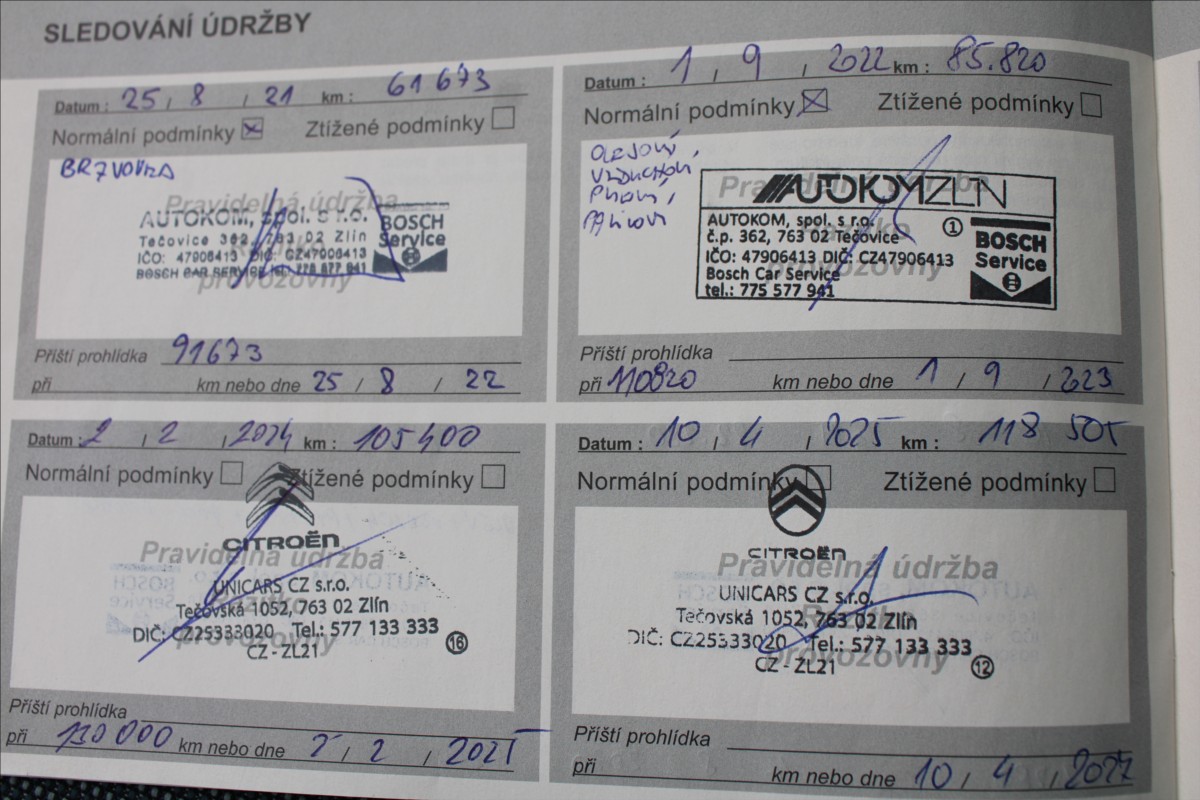 SLEDOVÁNÍ ÚDRŽBY
Datum : 25 / 8 / 21 km : 61 673
Normální podmínky Ztížené podmínky
Pravidelná údržba
AUTOKOM, spol. s r.o.
Tečovice 362, 763 02 Zlín
IČO: 47906413 DIČ: CZ47906413
BOSCH CAR SERVICE tel. 775 577 941
BOSCH
Service
provozovny
Příští prohlídka 91673
při km nebo dne 25 / 8 / 22
Datum : 1 / 9 / 2022 km : 85.820
Normální podmínky Ztížené podmínky
Olejový,
Pravidelná údržba
AUTOKOMZLÍN
AUTOKOM, spol. s r.o.
č.p. 362, 763 02 Tečovice
IČO: 47906413 DIČ: CZ47906413
Bosch Car Service
tel.: 775 577 941
1
BOSCH
Service
Razítko
provozovny
Příští prohlídka
při 110820 km nebo dne 1 / 9 / 2023
Datum : 2 / 2 / 2024 km : 105 400
Normální podmínky Ztížené podmínky
CITROËN
Pravidelná údržba
UNICARS CZ s.r.o.
Razítko
Tečovská 1052, 763 02 Zlín
DIČ: CZ25333020 Tel.: 577 133 333
provozovny
CZ - ZL21
16
Příští prohlídka
při 130 000 km nebo dne 2 / 2 / 2025
Datum : 10 / 4 / 2025 km : 118 505
Normální podmínky Ztížené podmínky
CITROËN
Pravidelná údržba
UNICARS CZ s.r.o.
Razítko
Tečovská 1052, 763 02 Zlín
DIČ: CZ25333020 Tel.: 577 133 333
provozovny
CZ - ZL21
12
Příští prohlídka
při km nebo dne 10 / 4 / 2027